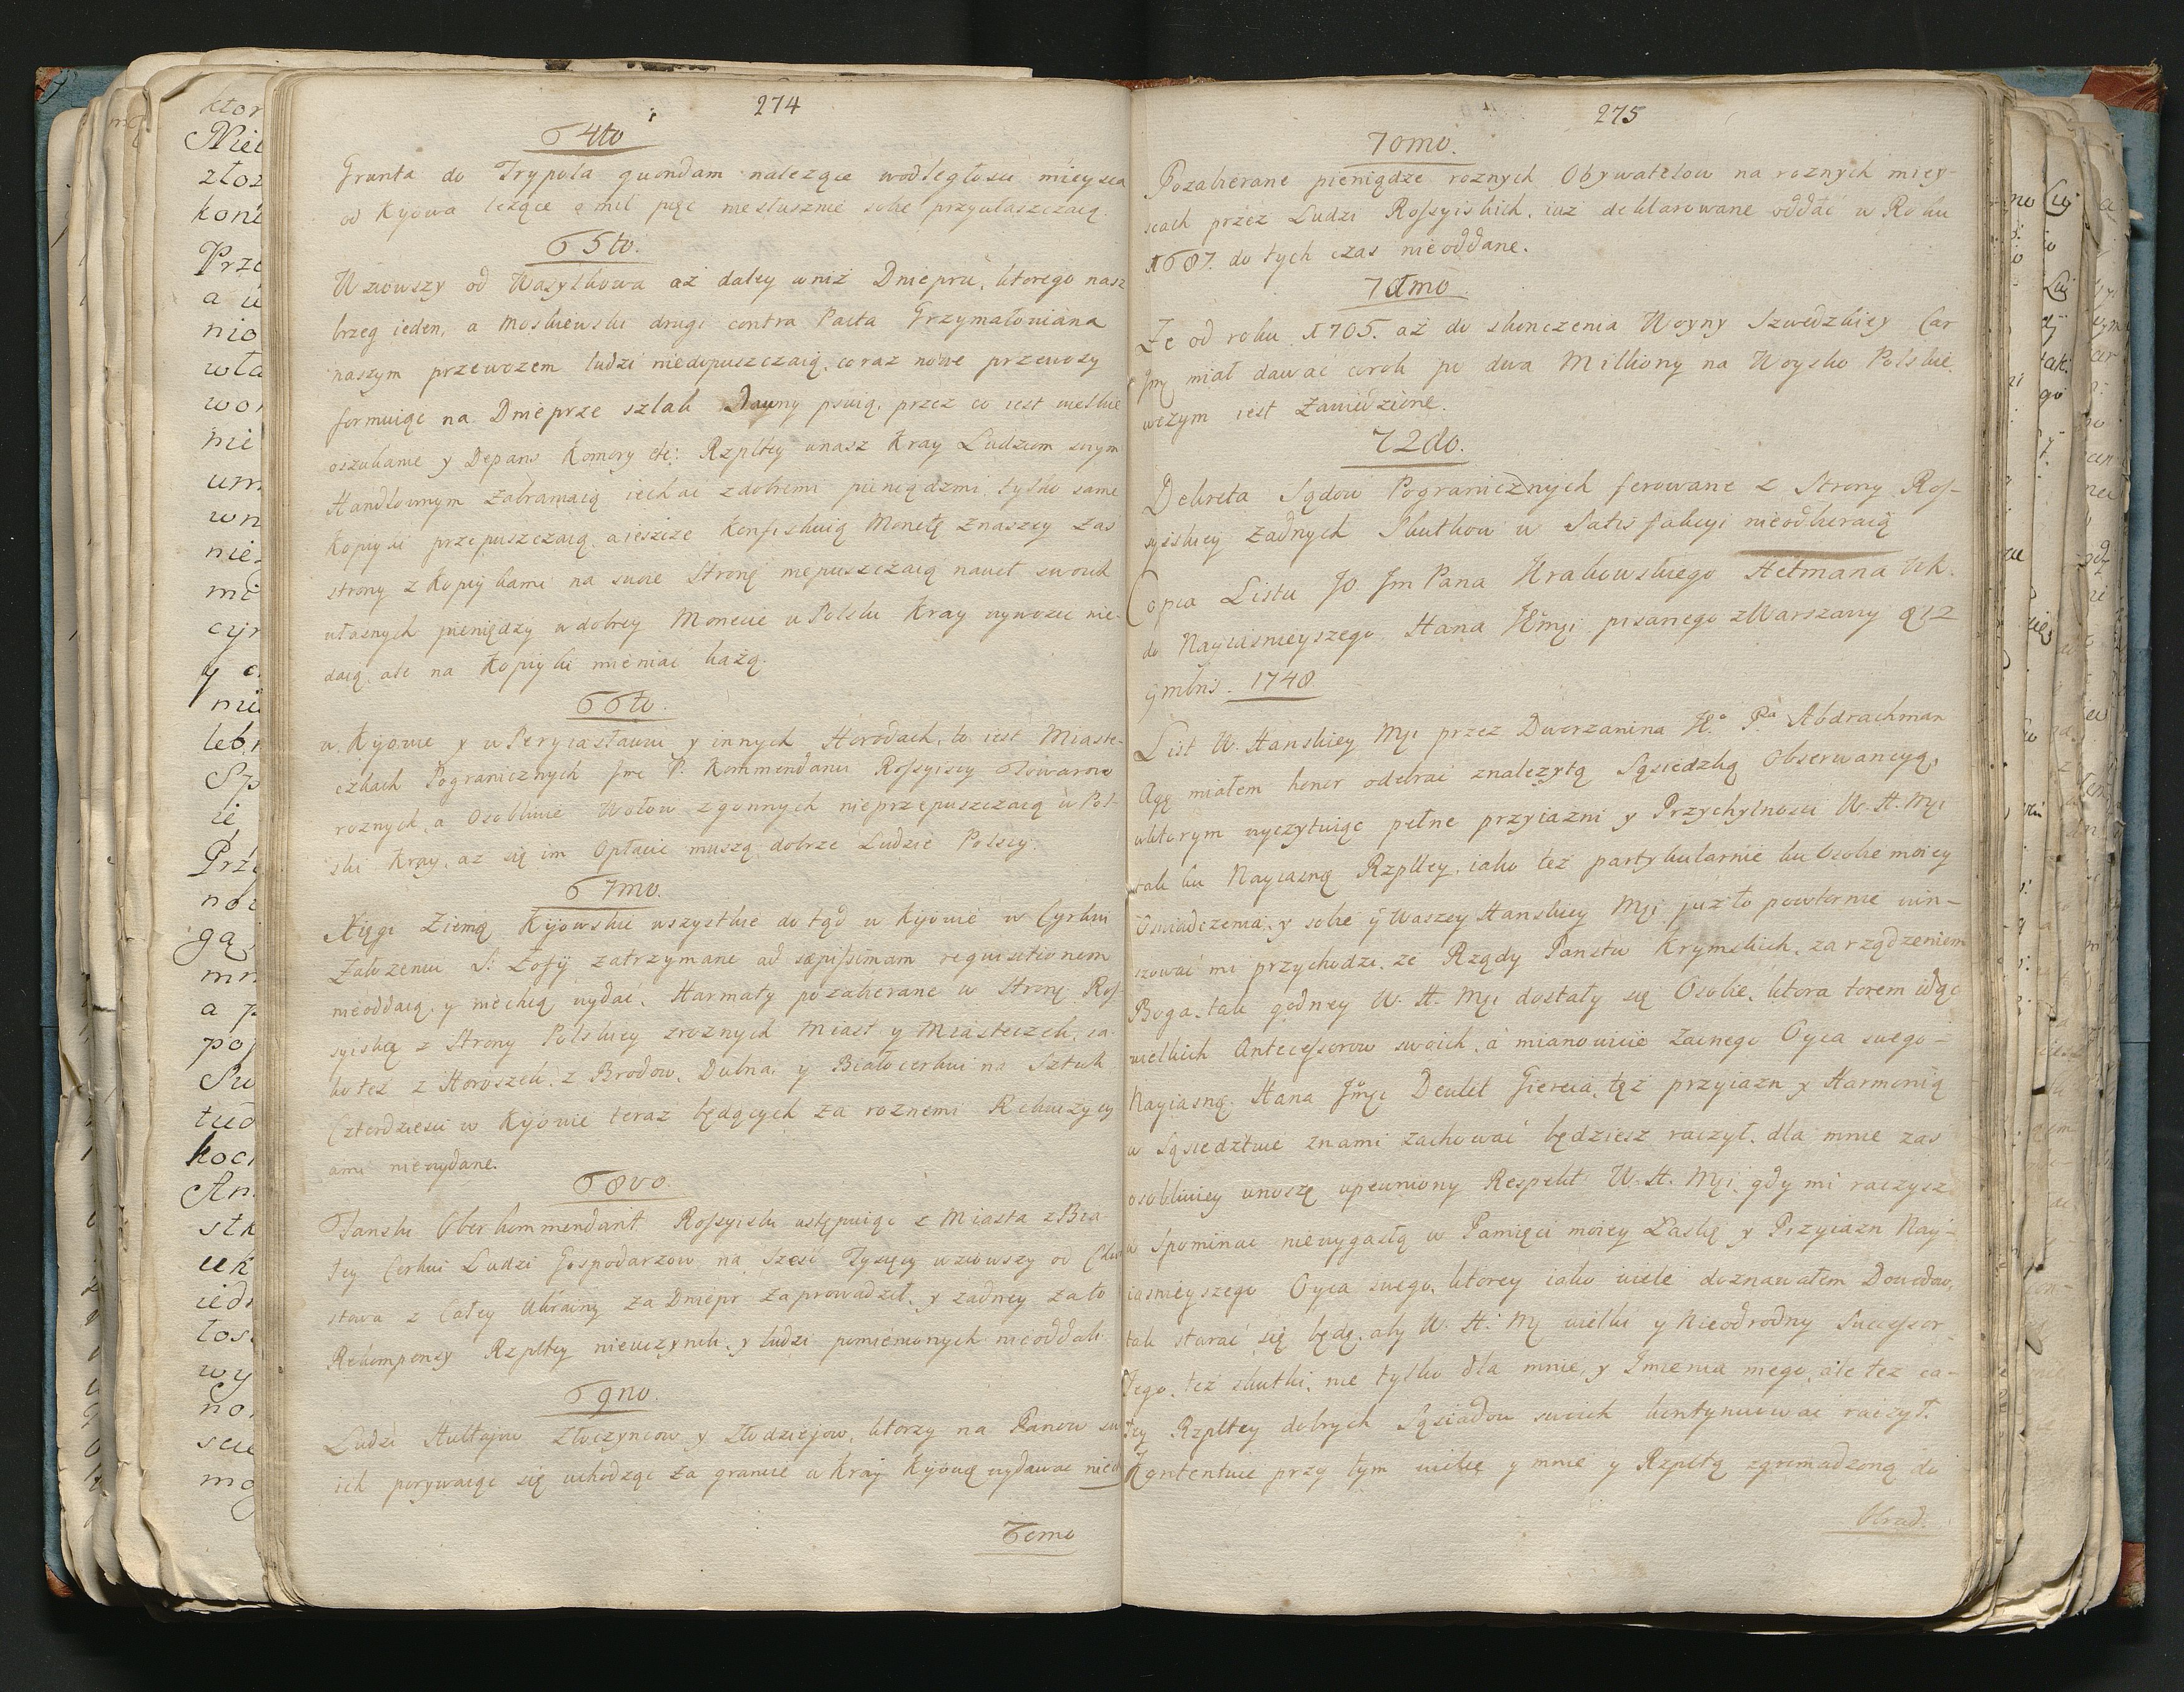 274
64to
Grunta do Trypola quondam nalezące wodległości mieysca
od Kyowa leżące o mil pięc niesłusznie sobie przywłaszczaią.
65to.
Wziowszy od Wasylkowa aż daley wniż Dniepru, ktorego nasz
brzeg ieden, a Moskiewski drugi contra Pacta Grzymałowiana
naszym przewozem ludzi niedopuszczaią, coraz nowe przewozy
formuiąc na Dnieprze szlak Dawny psuią, przez co iest wielkie
oszukanie y Depans Komory etc: Rzpltey wnasz Kray Ludziom swym
Handlownym zabraniaią iechać zdobremi pieniądzmi, tylko same
Kopiyki przepuszczaią, aieszcze konfiskuią Monetę znaszey zas
strony z Kopiykami na swoie Stronę niepuszczaią nawet swoich
własnych pieniędzy w dobrey Monecie w Polski Kray wywozic nie-
daią, ale na Kopiyki mieniać każą.
66to.
w Kijowie y w Peryiasławiu y innych Horodach, to iest Miaste-
czkach Pogranicznych Jmc P. Kommendanci Rossyiscy Towarow
roznych, a Osobliwie Wołow zgonnych nieprzepuszczaią w Pol-
ski Kray, az się im Opłacic muszą dobrze Ludzie Polscy.
67mo.
Xięgi Ziemą Kijowskie wszystkie do tąd w Kijowie w Cyrkwi
Założeniu S: Zofij zatrzymane ad sæpissimam requisitionem
nieoddaią, y niechcą wydać, Harmaty pozabierane w Stronę Ros-
syiską z Strony Polskiey zroznych Miast y Miasteczek, ia-
ko też z Horoszek, z Brodow, Dubna, y Białocerkwi na Sztuk
Czterdziesci w Kijowie teraz będących za roznemi Rekwizycy
ami niewydane.
68vo.
Tanski Oberkommendant Rossyiski ustępuiąc z Miasta z Bia
łey Cerkwi Ludzi Gospodarzow na Szesć Tysięcy wziowszy od
stawa z Całey Ukrainy za Dniepr zaprowadził, y zadney za to
Rekompensy Rzpltey nieuczynili, y ludzi pomienionych nieoddali.
69no.
Ludzi Hultajow Złoczyncow y Złodziejow, ktorzy na Panow sw
ich porywaiąc się uchodząc za granice w Kray Kijowę wydawac niech
70mo
275
70mo.
Pozabierane pieniądze roznych Obywatelow na roznych miey-
scach przez Ludzi Rossyiskich, iuż deklarowane oddać w Roku
1687. do tych czas nieoddane.
71mo.
Ze od roku 1705. aż do skonczenia Woyny Szwedzkiey Car
Jmę miał dawać corok po dwa Milliony na Woysko Polskie,
wczym iest zawiedzione.
72do.
Dekreta Sądow Pogranicznych ferowane z Strony Ros-
syiskiey zadnych Skutkow w Satisfakcyi nieodbieraią
Copia Listu JO Jm Pana Krakowskiego Hetmana Wk.
do Nayiasnieyszego Hana JKmęi pisanego z Warszawy 12
9mbris. 1748
List W. Hanskiey Mçi przez Dworzanina Abdrachman
Agę miałem honor odebrać znależytą Sąsiedzką Obserwancyą,
wktorym wyczytuiąc pełne przyiazni y Przychylnosci W. H. Mçi
tak ku Nayiasnę Rzpltey, iako też partykularnie ku Osobie moiey
Oswiadczenia, y sobie y Waszey Hanskiey Mçi już to powtornie win-
szować mi przychodzi, ze Rządy Panstw Krymskich, zarządzeniem
Boga, tak godney W. H. Mçi dostały się Osobie, ktora torem idąc
wielkich Antecessorow swoich, a mianowicie zacnego Oyca swego-
Nayiasnę. Hana Jmçi Deulet Giereia, tęż przyiazn y Harmonią
w Sąsiedztwie znami zachować będziesz raczył, dla mnie zas
osobliwiey wnoszę upewniony Respekt W. H. Mçi, gdy mi raczysz
w Spominac niewygasłą w Pamięci moiey Łaskę y Przyiazn Nay-
iasnieyszego Oyca swego, ktorey iako wiele doznawałem Dowodow,
tak starać się będę, aby W. H. Mç wielki y Nieodrodny Successor
Jego, też skutki, nie tylko dla mnie, y Jmienia mego, ale tez ca-
łey Rzpltey dobrych Sąsiadow swoich kontynuować raczył.
Kontentuie przy tym wielce y mnie y Rzpltą zgromadzoną do
Obrad.